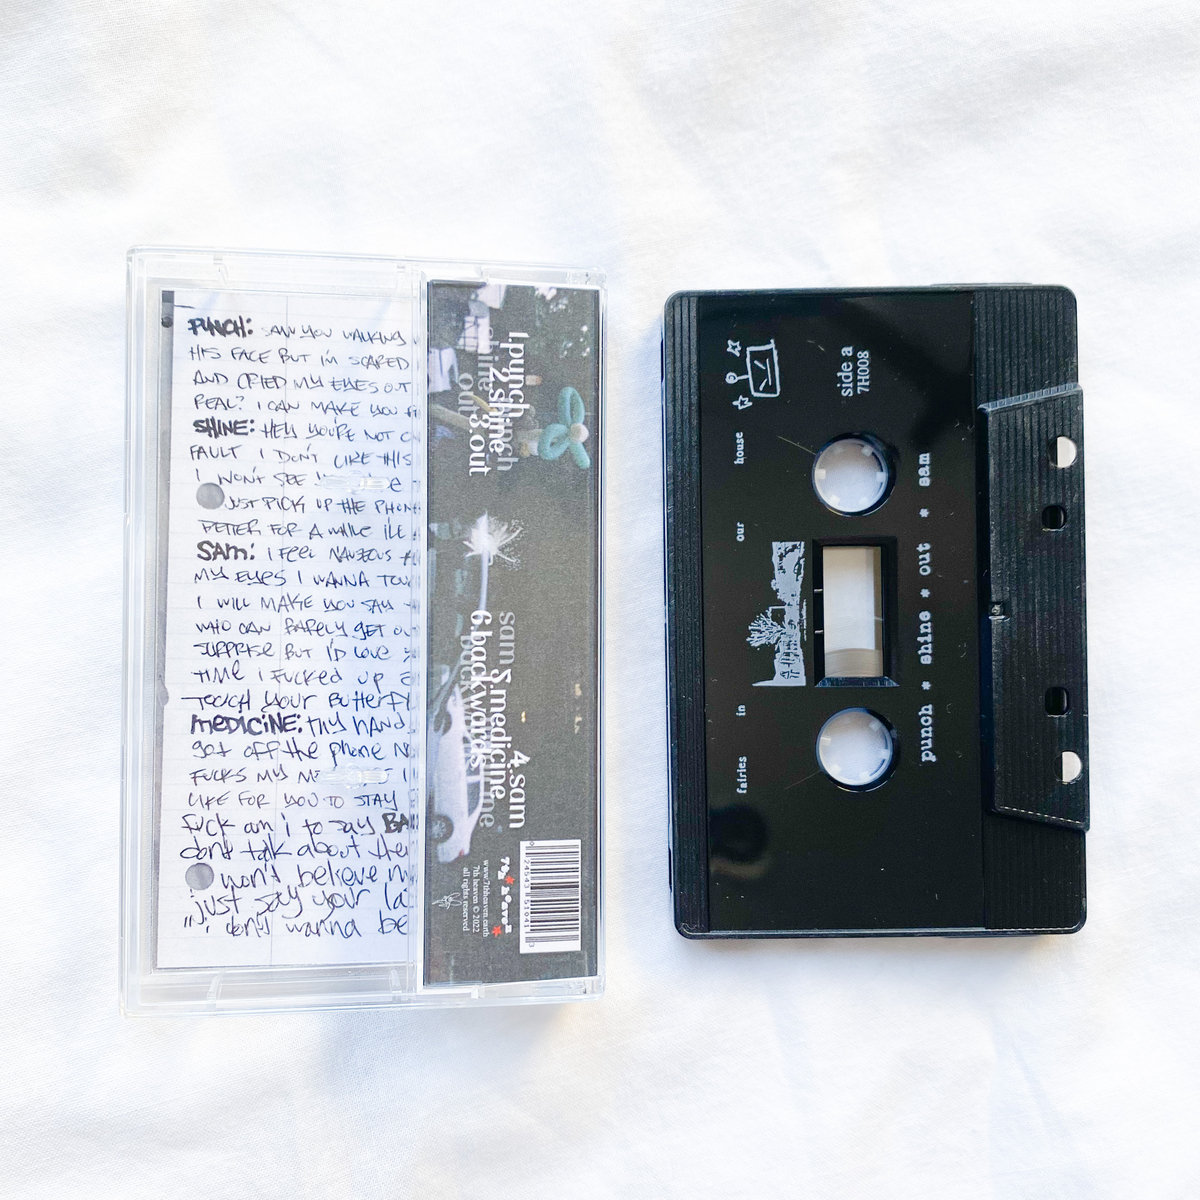 PUNCH: SAW YOU WALKING
HIS FACE BUT I'M SCARED
AND CRIED MY EYES OUT
REAL? I CAN MAKE YOU
SHINE: HEY YOU'RE NOT
FAULT I DON'T LIKE THIS
I WON'T SEE
JUST PICK UP THE PHONE
BETTER FOR A WHILE ILL
SAM: I FEEL NAUSEOUS
MY EYES I WANNA
I WILL MAKE YOU SAY
WHO CAN BARELY GET
SURPRISE BUT I'D LOVE
TIME I FUCKED UP
TOUCH YOUR BUTTERFLY
MEDICINE: MY HAND
got off the phone
FUCKS MY
LIKE FOR YOU TO STAY
fuck am i to say BA
dont talk about
won't believe
just say your
i don't wanna be
1.punch
2.shine
3.out
4.sam
5.medicine
6.backwards
7th heaven
www.7thheaven.earth
7th heaven © 2022
all rights reserved
side a
7H008
fairies in our house
punch * shine * out * sam